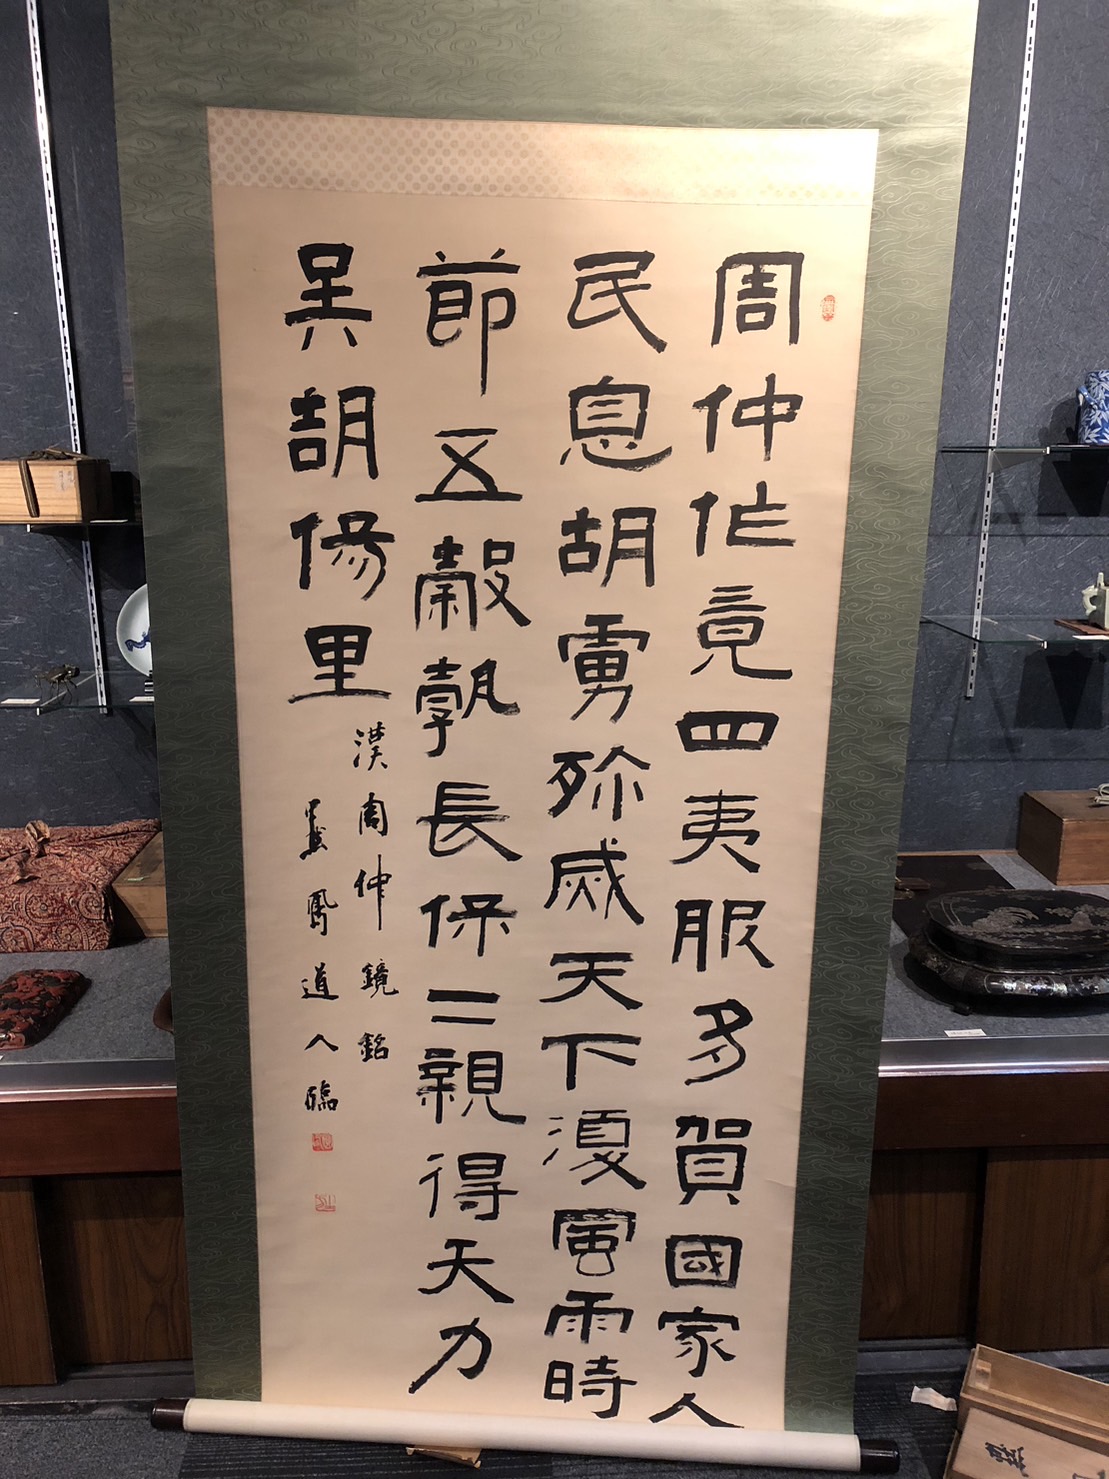 周仲作竟四夷服多賀國家人
民息胡虏殄烕天下復風雨時
節五穀孰長保二親得天力
吴胡傷里
漢周仲鏡銘
鳳道人臨